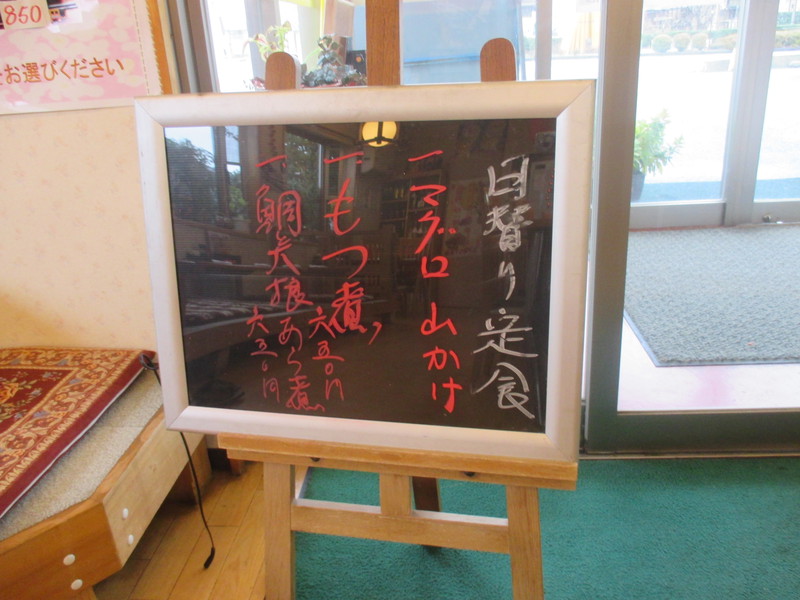 日替り定食
一.マグロ山かけ
一.もつ煮
六五〇円
一.鯛大根あら煮
六五〇円
860
お選びください